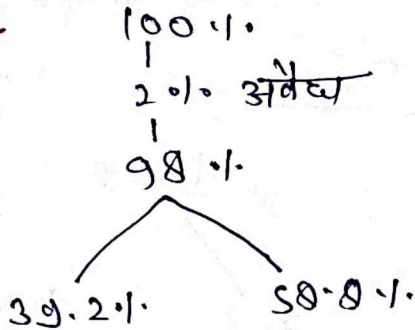 100%
2% अवैध
98%
39.2% 58.8%